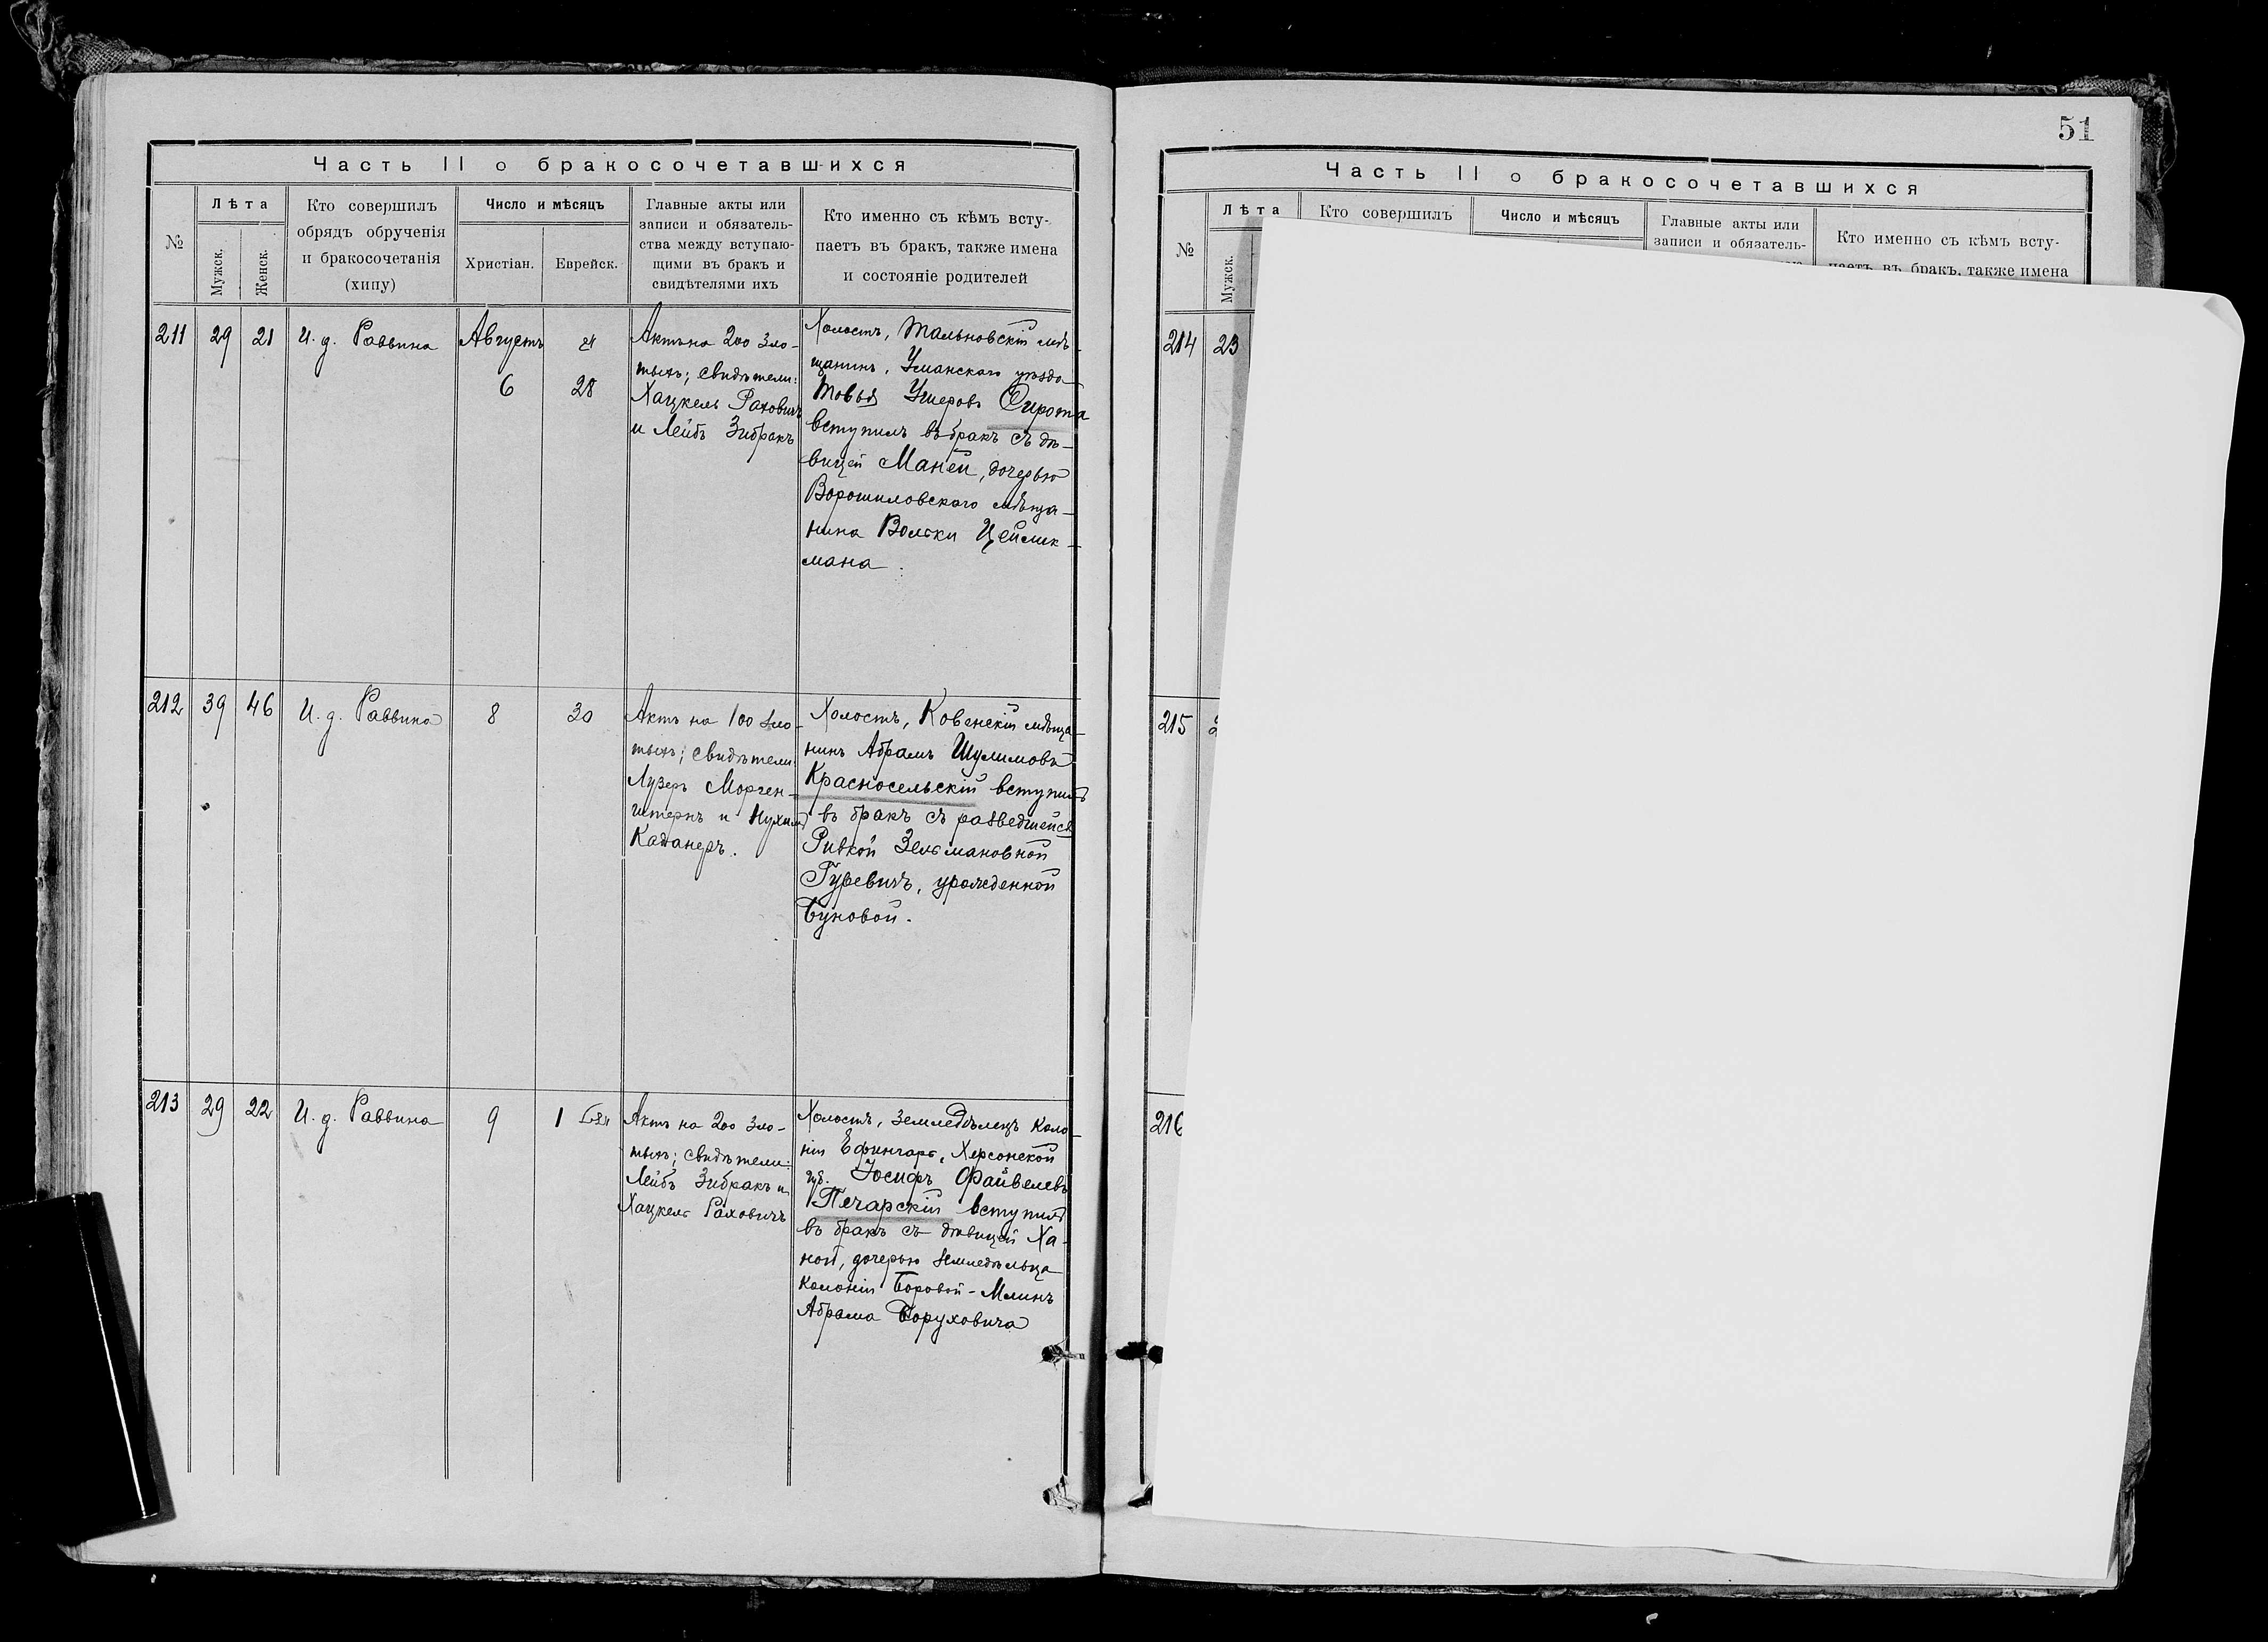 51
Часть II о бракосочетавшихся
№
Лѣта
Мужск.
Женск.
Кто совершилъ
обрядъ обрученія
и бракосочетанія
(хипу)
Число и мѣсяцъ
Христіан.
Еврейск.
Главные акты или
записи и обязатель-
ства между вступаю-
щими въ бракъ и
свидѣтелями ихъ
Кто именно съ кѣмъ всту-
паетъ въ бракъ, также имена
и состояніе родителей
211
29
21
И. д. Раввина
Августъ
6
28
Актъ на 200 зло-
тыхъ; свидѣтели:
Хацкель Рахович
и Лейбъ Зибракъ
Холостъ, Тальновскій мѣ-
щанинъ, Уманскаго уѣзда
Товья Умеровъ Сирота
вступилъ въ бракъ съ дѣ-
вицей Маней, дочерью
Ворошиловскаго мѣща-
нина Вольки Цейлик-
мана.
212
39
46
И. д. Раввина
8
30
Актъ на 100 зло-
тыхъ; свидѣтели:
Лузеръ Морген-
штернъ и Нухим
Каданеръ.
Холостъ, Ковенскій мѣща-
нинъ Абрамъ Шулимовъ
Красносельскій вступилъ
въ бракъ съ разведшейся
Ривкой Зельмановной
Гуревичъ, урожденной
Буновой.
213
29
22
И. д. Раввина
9
1
Актъ на 200 зло-
тыхъ; свидѣтели:
Лейбъ Зибракъ и
Хацкель Раховичъ
Холостъ, земледѣлецъ коло-
ніи Ефингаръ, Херсонской
губ. Іосифъ Файвелевъ
Печарскій вступилъ
въ бракъ съ дѣвицей Ха-
ной, дочерью земледѣльца
колоніи Боровой-Млинъ
Абрама Боруховича
Часть II о бракосочетавшихся
№
Лѣта
Мужск.
Кто совершилъ
Число и мѣсяцъ
Главные акты или
записи и обязатель-
Кто именно съ кѣмъ всту-
паетъ въ бракъ, также имена
214
23
215
216